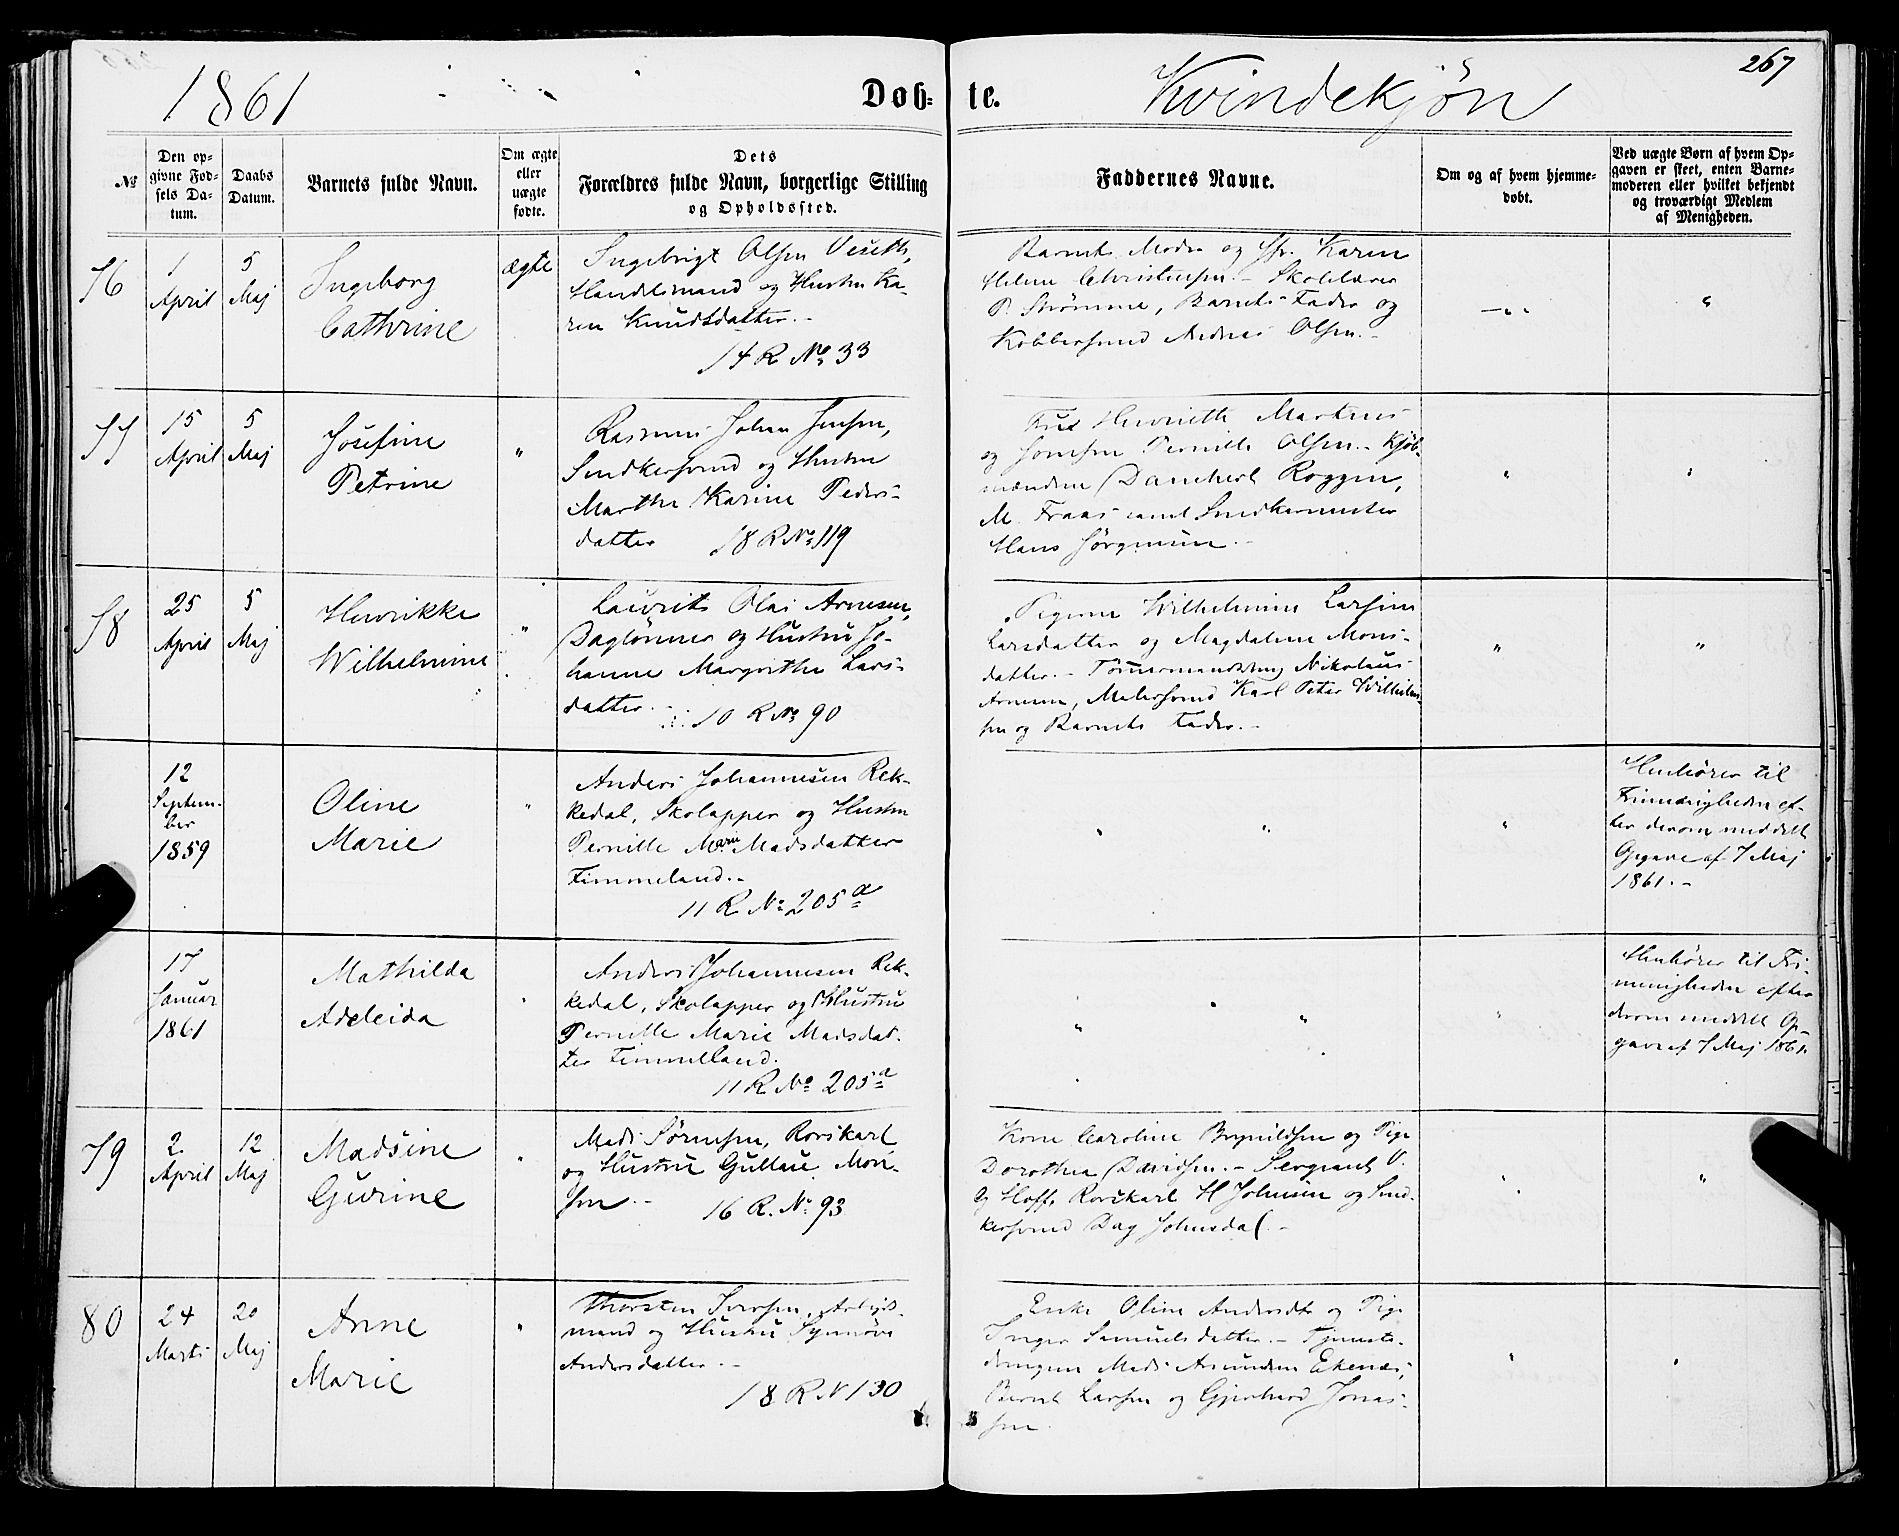 267
1861
Døb-
te.
Kvindekjøn
№
Den op-
givne Fød-
sels Da-
tum.
Daabs
Datum.
Barnets fulde Navn.
Om ægte
eller
uægte
fødte.
Dets
Forældres fulde Navn, borgerlige Stilling
og Opholdssted.
Faddernes Navne.
Om og af hvem hjemme-
døbt.
Ved uægte Børn af hvem Op-
gaven er skeet, enten Barne-
moderen eller hvilket bekjendt
og troværdigt Medlem
af Menigheden.
76
1
April
5
Maj
Ingeborg
Cathrine
ægte
Ingebrigt Olsen Veseth,
Handelsmand og Hustru Ka-
ren Knudsdatter.-
14 R No 33
Barnets Moder og Karen
Helene Christensen.- Skolelærer
P. Strømme, Barnets Fader og
Kobbersvend Andreas Olsen.-
77
15
April
5
Maj
Josefine
Petrine
"
Rasmus Johan Jensen,
Snedkersvend og Hustru
Marthe Karine Peders-
datter
18 R No 119
Frue Henriette Martens
og Jomfru Pernille Olsen.- Kjøb-
mændene Danchert Roggen,
M. Fraas samt Snedkermester
Hans Jørgensen.-
"
"
78
25
April
5
Maj
Henrikke
Wilhelmine
"
Laurits Olai Arnesen,
Daglønner og Hustru Jo-
hanne Margrethe Lars-
datter.-
10 R No 90
Pigerne Wilhelmine Larsine
Larsdatter og Magdalene Mons-
datter.- Tømmermændene Nikolaus
Arnesen, Malersvend Karl Peter Wilhelm-
sen og Barnets Fader.-
"
"
12
Septem-
ber
1859
Oline
Marie
"
Anders Johannesen Rek-
kedal, Skolapper og Hustru
Pernille Marie Madsdatter
Fimmeland.-
11 R. No 205 a
"
"
"
Henhører til
Frimenigheden ef-
ter derom meddelt
Opgave af 7 Maj
1861.-
17
Januar
1861
Mathilda
Adeleida
"
Anders Johannesen Rek-
kedal, Skolapper og Hustru
Pernille Marie Madsdat-
ter Fimmelland.
11 R No 205 a
"
"
"
Henhører til Fri-
menigheden efter
derom meddelt Op-
gave af 7 Maj 1861.
79
2
April
12
Maj
Madsine
Gurine
"
Mads Sørensen, Rorskarl
og Hustru Gullaue Mon-
sen.-
16 R. No 93
Kone Caroline Brynildsen og Pige
Dorothea Davidsen.- Sergeant V.
G Hoff, Rorskarl H Johnsen og Sned-
kersvend Dag Johnsdal.-
"
"
80
24
Marts
20
Maj
Anne
Marie
"
Thorsten Iversen, Arbeids-
mand og Hustru Synnøve
Andersdatter.-
18 R N 130
Enke Oline Andersdtr og Pige
Inger Samuelsdatter.- Tjeneste-
drengene Mads Amundsen Ekenæs,
Bernt Larsen og Gjerhard Jonas-
sen.
"